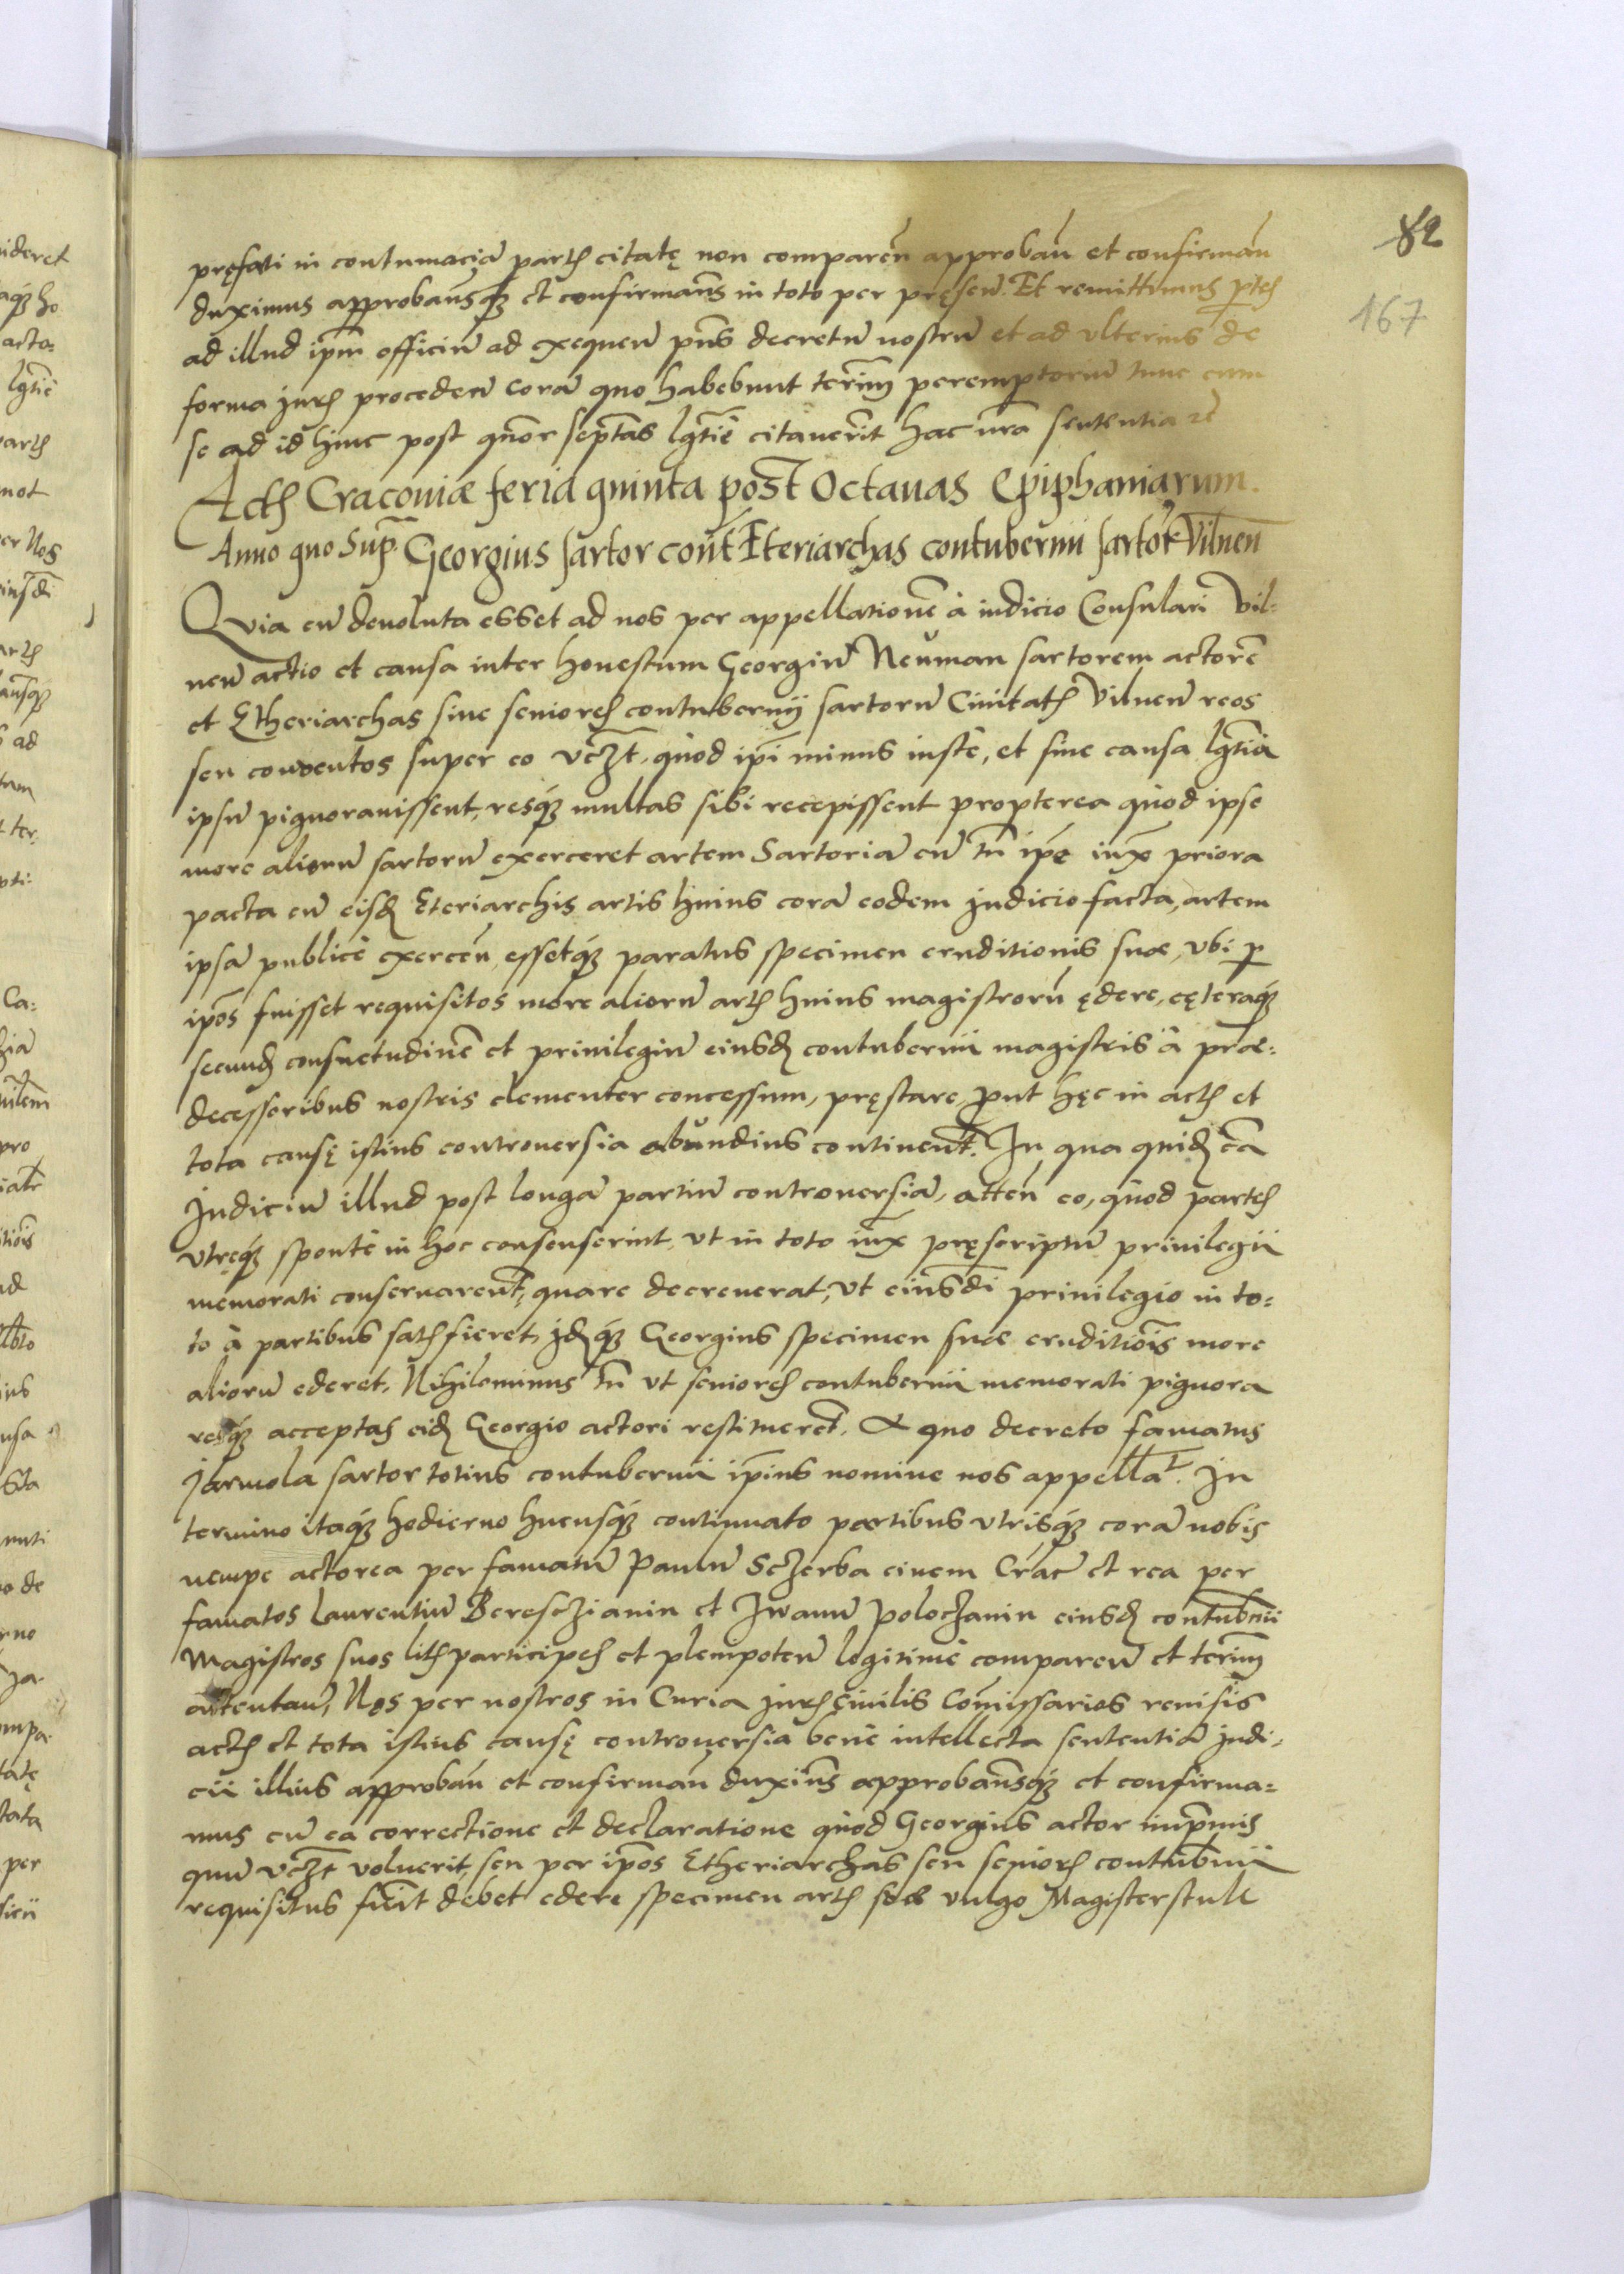 82
167
pręfati in contumaciã partꝭ citatę non comparẽn approbañ et confirmañ
duximus approbam̃sqȝ et confirmam̃s in toto per pręsent̃. Et remittimus p̃tes
ad illud ip̃m officiũ ad exequeñ pñs decretũ nostrũ et ad vlterius de
forma jurꝭ procedeñ corã quo habebunt term̃in peremptoriũ tunc cum
se ad id hinc post quõr septĩas lg̃tĩe citauerĩt hac nr̃a sententia
Actꝭ Cracouiæ feria quinta post Octauas Epiphaniarum.
Anno quo Sup̃. Georgius sartor cont̃ Eteriarchas contubernii sartoꝝ Vilneñ
Quia cũ deuoluta esset ad nos per appellationẽ à iudicio Consulari Vil-
neñ actio et causa inter honestum Georgiũ Neŭman sartorem actorẽ
et Etheriarchas siue seniorꝭ contubernij sartorũ Ciuitatꝭ Vilneñ reos
seu conuentos super eo vcz̃t, quòd ip̃i minus iustè, et sine causa lg̃tĩa
ipsũ pignorauissent, resqȝ multas sibi recepissent propterea quòd ipse
more aliorũ sartorũ exerceret artem Sartoriã cũ tñ ip̃e iux̃ priora
pacta cũ eisd̃ Eteriarchis artis huius corã eodem judicio facta, artem
ipsã publicè exerceñ, essetqȝ paratus specimen eruditionis suæ, vbi p̱
ip̃os fuisset requisitos more aliorũ artꝭ huius magistrorũ ędere, cęteraqȝ
secund̃ consuetudinẽ et priuilegiũ eiusd̃ contubernii magistris à præ-
decessoribus nostris clementer concessum, pręstare, prout hęc in actꝭ et
tota causę istius controuersia abŭndius continent̃. In qua quid̃ cã
Judiciũ illud post longã partiũ controuersiã, atteñ eo, quòd partes
vtręqȝ spontè in hoc consenserint, vt in toto iux̃ pręscriptũ priuilegii
memorati conseruarent̃, quare decreuerat, vt eiusdĩ priuilegio in to-
to à partibus satꝭfieret, jd̃qȝ Georgius specimen suæ eruditiõis more
aliorũ ederet. Nihilominus tñ vt seniorꝭ contubernii memorati pignora
resqȝ acceptas eid̃ Georgio actori restituerẽt. A quo decreto famatus
Jarmola sartor totius contubernii ip̃ius nomine nos appellaᵗ. In
termino itaqȝ hodierno hucusqȝ continuato partibus vtrisqȝ corã nobis
nempe actorea per famatũ Paulũ Sczerba ciuem Crac̃ et rea per
famatos Laurentiũ Beresczianin et Iwanũ Poloczanin eiusd̃ contub̃nii
Magistros suos litꝭ participes et plenipoteñ legitimè compareñ et term̃in
attentañ, Nos per nostros in Curia jurꝭ ciuilis Com̃issarios reuisis
actꝭ et tota istius causę controuersia benè intellecta sententiã judi-
cii illius approbañ et confirmañ duxim̃s approbam̃sqȝ et confirma-
mus cũ ea correctione et declaratione quòd Georgius actor inp̃mis
quũ vcz̃t voluerit, seu per ip̃os Etheriarchas seu seniorꝭ contub̃nii
requisitus fuĩt debet edere specimen artꝭ suæ vulgo Magisterstuk